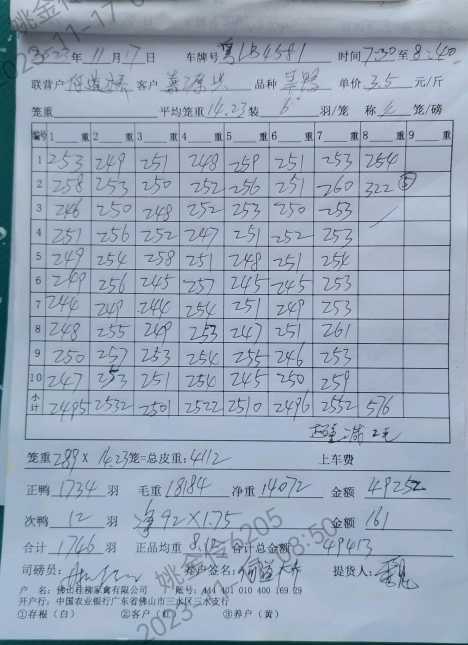 2023年11月17日 车牌号 粤LB4581 时间7:30至8:40
联营户 客户 品种 草鸭 单价 3.5 元/斤
笼重 平均笼重 14.23 装 6 羽/笼 称 笼/磅
编号 1 重 2 重 3 重 4 重 5 重 6 重 7 重 8 重 9 重
1 253 249 251 248 259 251 253 254
2 258 253 250 252 256 251 260 322 ⑤
3 246 250 248 252 253 250 253
4 251 256 252 247 251 252 253
5 249 254 258 251 248 251 254
6 249 256 245 257 245 245 253
7 244 249 244 254 251 249 253
8 248 255 249 253 247 251 261
9 250 257 253 254 255 246 253
10 247 253 251 254 245 250 259
小计 2495 2532 2501 2522 2510 2496 2552 576
超重满2元
笼重 289 X 14.23 笼=总皮重: 4112 上车费
正鸭 1734 羽 毛重 18184 净重 14072 金额 49252
次鸭 12 羽 净92X1.75 金额 161
合计 1746 羽 正品均重 8.12 合计总金额 49413
司磅员: 养户签名: 提货人:
户 名: 佛山桂柳家禽有限公司 账号: 444 401 010 400 169 29
开户行: 中国农业银行广东省佛山市三水区三水支行
①存根(白) ②客户(红) ③养户(黄)
姚金伶6205
2023-11-17 08:50